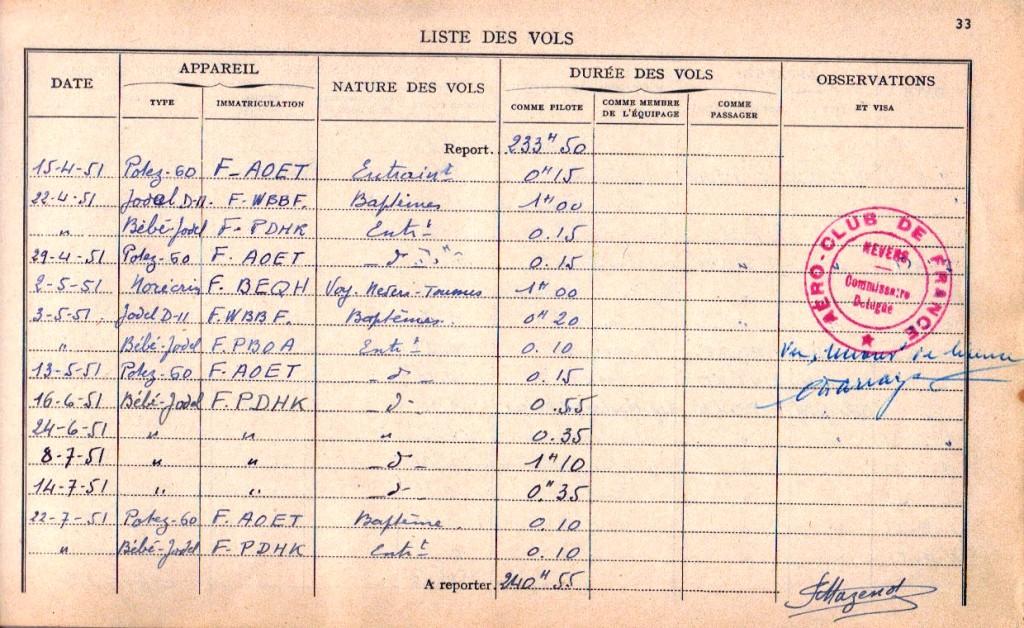 33
LISTE DES VOLS
DATE APPAREIL NATURE DES VOLS DURÉE DES VOLS OBSERVATIONS ET VISA
TYPE IMMATRICULATION COMME PILOTE COMME MEMBRE DE L'ÉQUIPAGE COMME PASSAGER
Report. 233H 50
15-4-51 Potez-60 F-AOET Entrain.t 0H15
22-4-51 Jodel D-11. F-WBBF. Baptêmes 1H00
" Bébé-Jodel F-PDHK Ent.t 0.15
29-4-51 Potez-60 F. AOET _d° " 0.15
2-5-51 Norécrin F. BEQH Voy. Nevers-Tournus 1H00
3-5-51. Jodel D-11 F.WBBF. Baptêmes. 0H20
" Bébé-Jodel F.PBOA Ent.t 0.10
13-5-51 Potez-60 F. AOET _d°_ 0.15
16-6-51 Bébé-Jodel F.PDHK _d°_ 0.55
24-6-51 " " " 0.35
8-7-51 " " _d°_ 1H10
14-7-51 " " _d°_ 0H35
22-7-51 Potez-60 F. AOET Baptême. 0.10
" Bébé-Jodel F-PDHK Ent.t 0.10
A reporter. 240H 55
AÉRO-CLUB DE FRANCE
NEVERS
Commissaire
Délégué